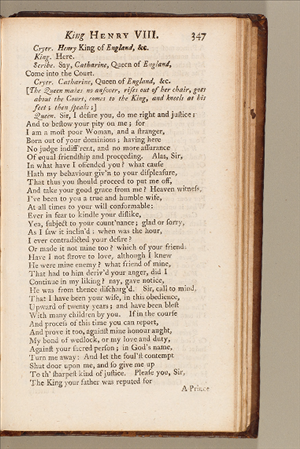 King HENRY VIII. 347
Cryer. Henry King of England, &c.
King. Here.
Scribe. Say, Catharine, Queen of England,
Come into the Court.
Cryer. Catharine, Queen of England, &c.
[The Queen makes no answer, rises out of her chair, goes
about the Court, comes to the King, and kneels at his
feet; then speaks;]
Queen. Sir, I desire you, do me right and justice;
And to bestow your pity on me; for
I am a most poor Woman, and a stranger,
Born out of your dominions; having here
No judge indiff'rent, and no more assurance
Of equal friendship and proceeding. Alas, Sir,
In what have I offended you? what cause
Hath my behaviour giv'n to your displeasure,
That thus you should proceed to put me off,
And take your good grace from me? Heaven witness,
I've been to you a true and humble wife,
At all times to your will conformable:
Ever in fear to kindle your dislike,
Yea, subject to your count'nance; glad or sorry,
As I saw it inclin'd: when was the hour,
I ever contradicted your desire?
Or made it not mine too? which of your friends
Have I not strove to love, although I knew
He were mine enemy? what friend of mine,
That had to him deriv'd your anger, did I
Continue in my liking? nay, gave notice,
He was from thence discharg'd. Sir, call to mind,
That I have been your wife, in this obedience,
Upward of twenty years; and have been blest
With many children by you. If in the course
And process of this time you can report,
And prove it too, against mine honour aught,
My bond of wedlock, or my love and duty,
Against your sacred person; in God's name,
Turn me away: And let the foul'st contempt
Shut door upon me, and so give me up
To th' sharpest kind of justice. Please you, Sir,
The King your father was reputed for
A Prince